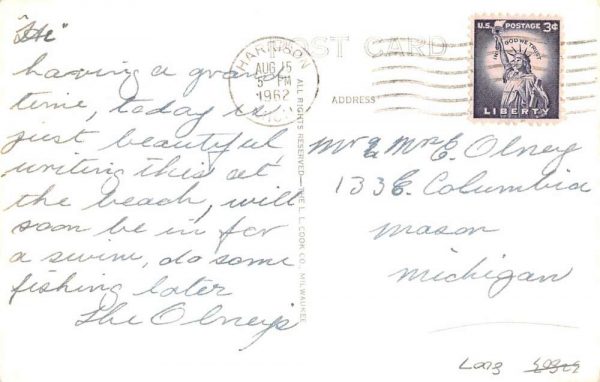 "Hi"
having a grand
time, today is
just beautiful
writing this at
the beach, will
soon be in for
a swim, do some
fishing later
The Olney's
POST CARD
HARRISON
AUG 15
5 PM
1962
ADDRESS
ALL RIGHTS RESERVED—THE L. L. COOK CO., MILWAUKEE
U.S. POSTAGE 3¢
IN GOD WE TRUST
LIBERTY
Mr & Mrs E. Olney
133 E. Columbia
Mason
Michigan